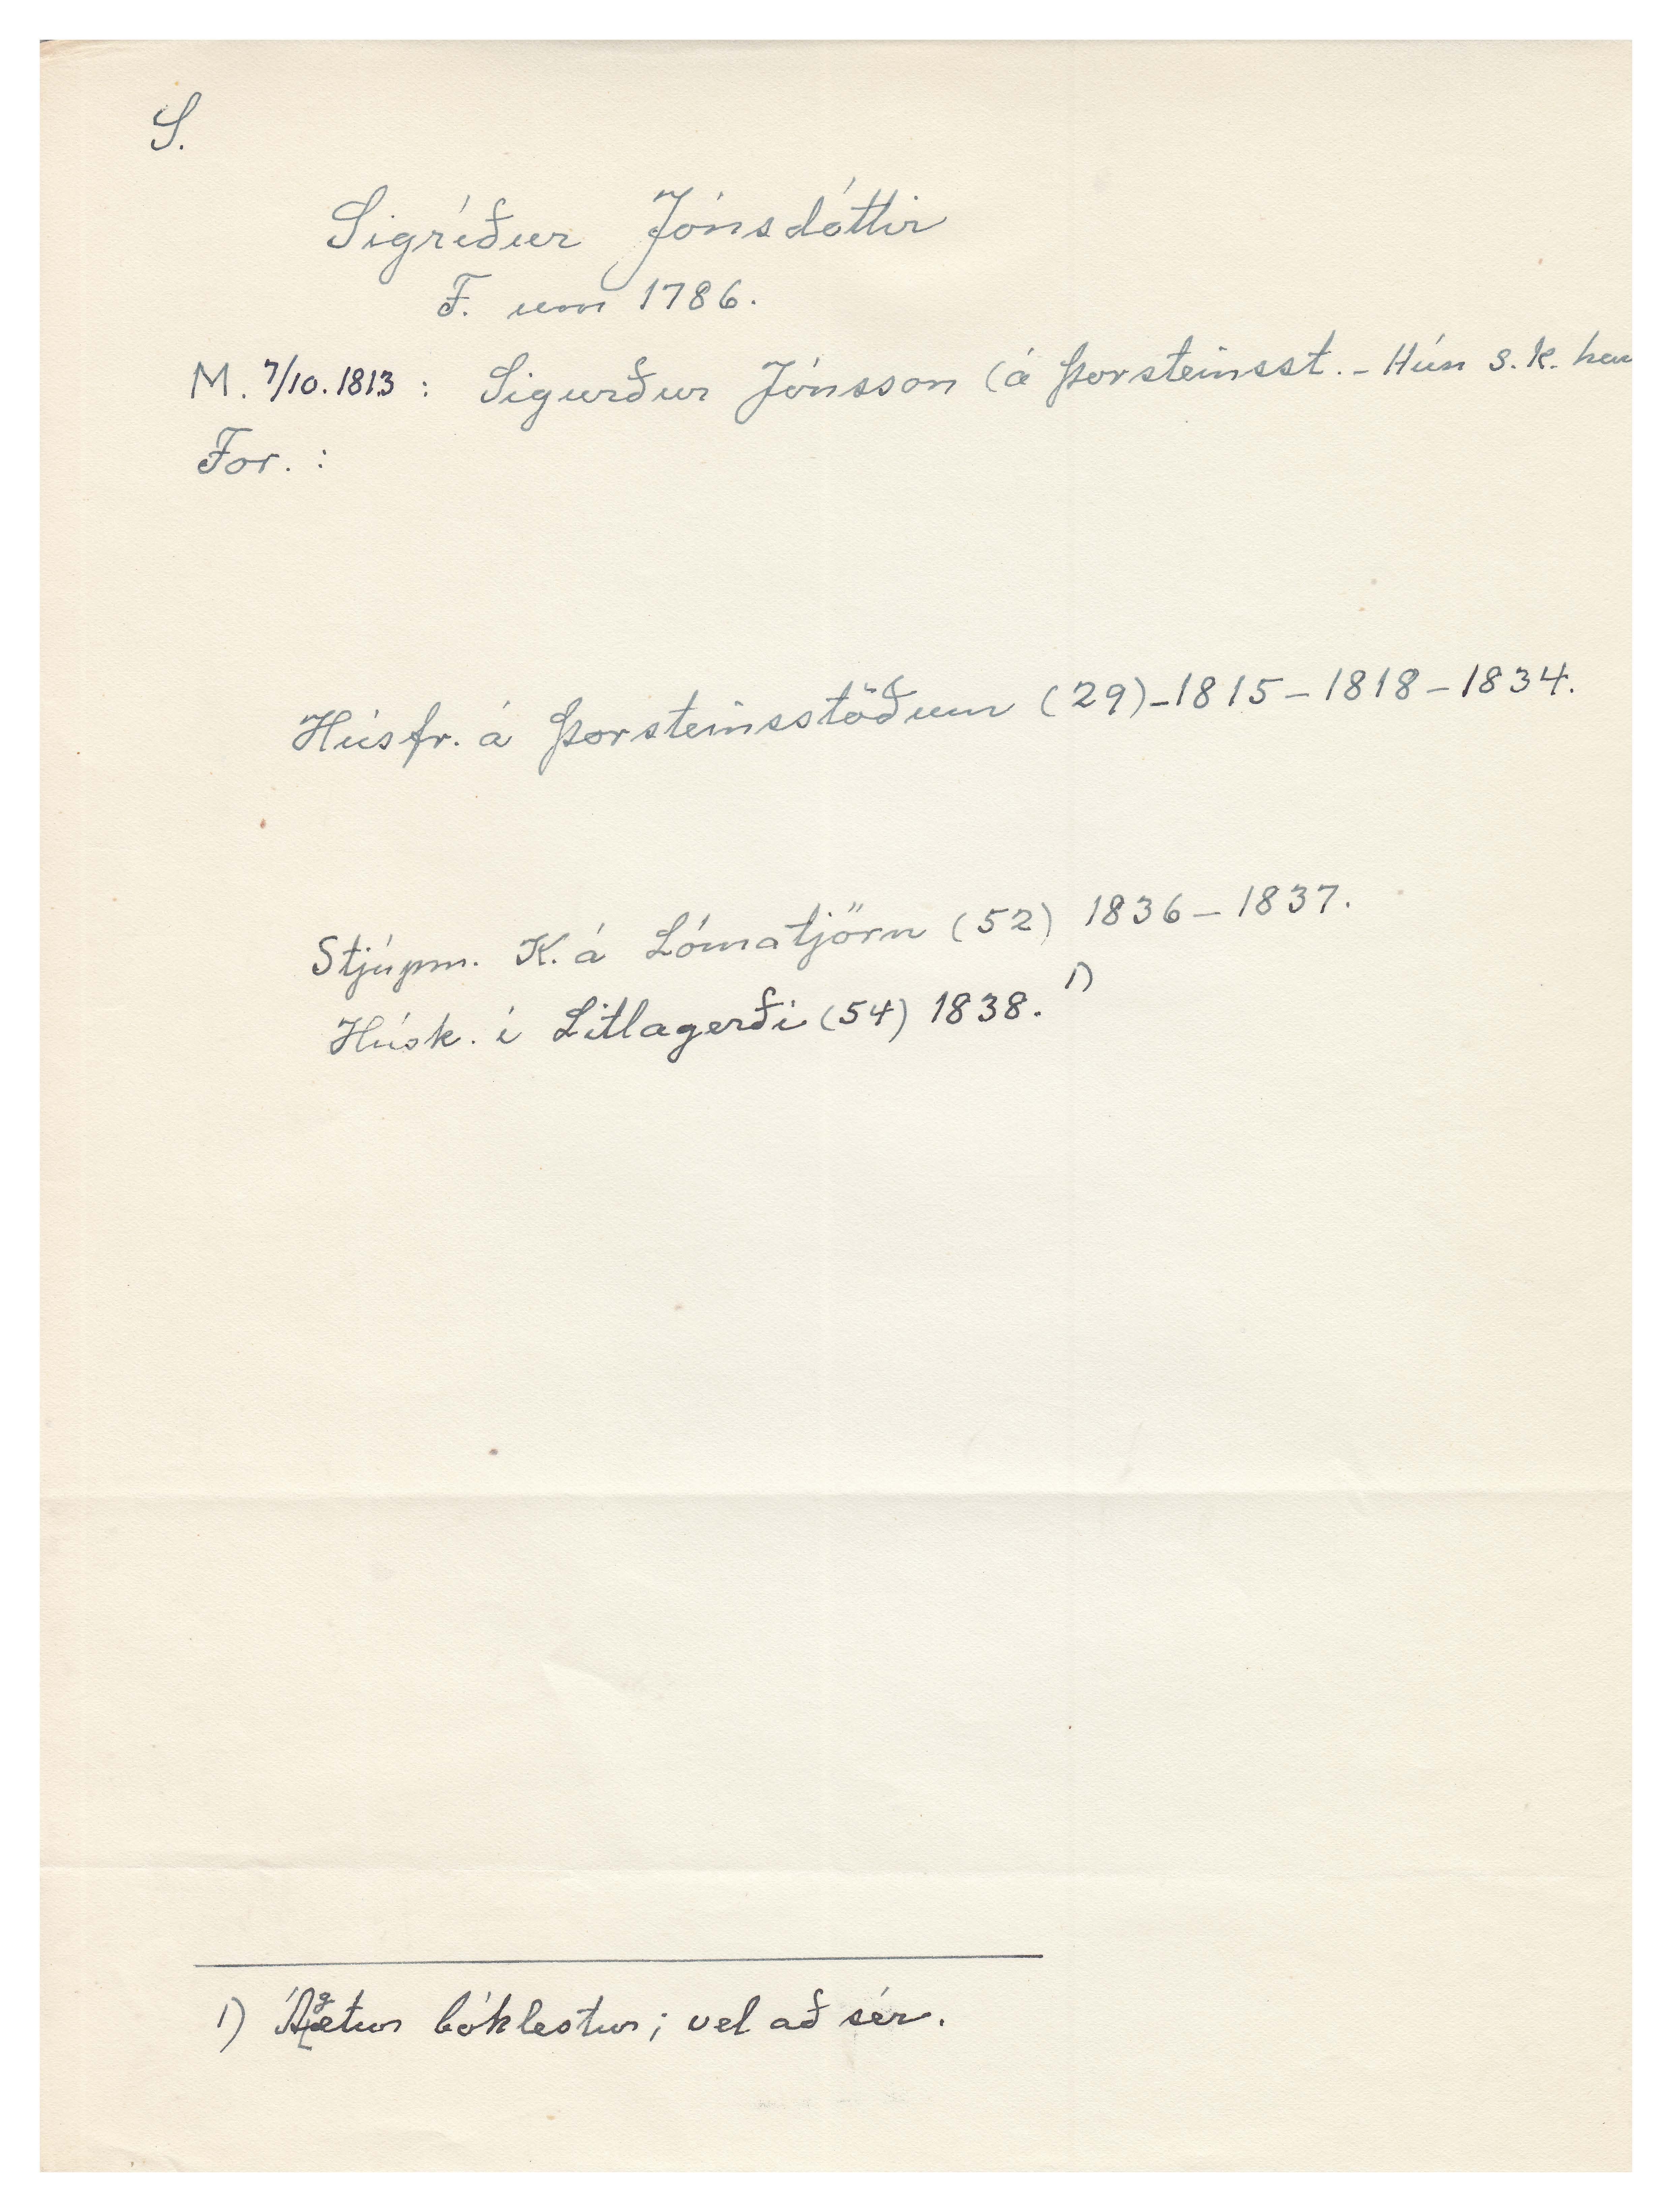 S.
Sigríður Jónsdóttir
F. um 1786.
M. 7/10. 1813 : Sigurður Jónsson (á Þorsteinsst. - Hún s. k. han
For. :
Húsfr. á Þorsteinsstöðum (29) - 1815 - 1818 - 1834.
Stjúpm. K. á Lómatjörn (52) 1836 - 1837.
Húsk. í Litlagerði (54) 1838. 1)
1) Ágætur bóklestur; vel að sér.